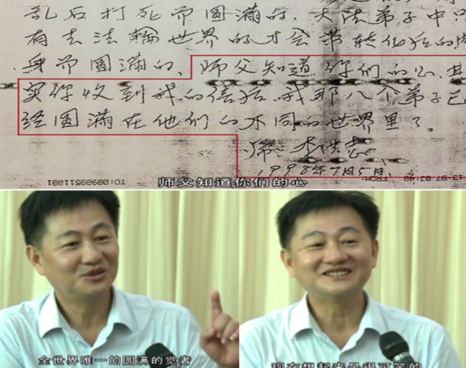 乱后打死而圆满的。大法弟子中只
有去法轮世界的才会带转化后的肉
身而圆满的。师父知道你们的心。其
实你收到我的信后,我那八个弟子已
经圆满在他们的不同的世界里了。
师:李洪志
1998年7月5日
师父知道你们的心
全世界唯一的圆满的觉者
现在想起来是很可笑的